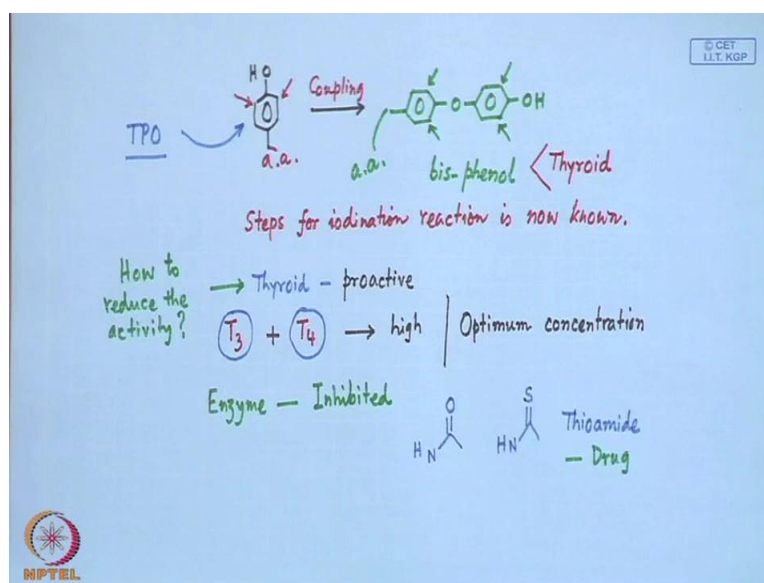 © CET
I.I.T. KGP
HO
Coupling
TPO
a.a.
O
OH
a.a.
bis-phenol
Thyroid
Steps for iodination reaction is now known.
How to
reduce the
activity?
Thyroid - proactive
T3 + T4 → high
Optimum concentration
Enzyme — Inhibited
O
HN
S
HN
Thioamide
— Drug
NPTEL